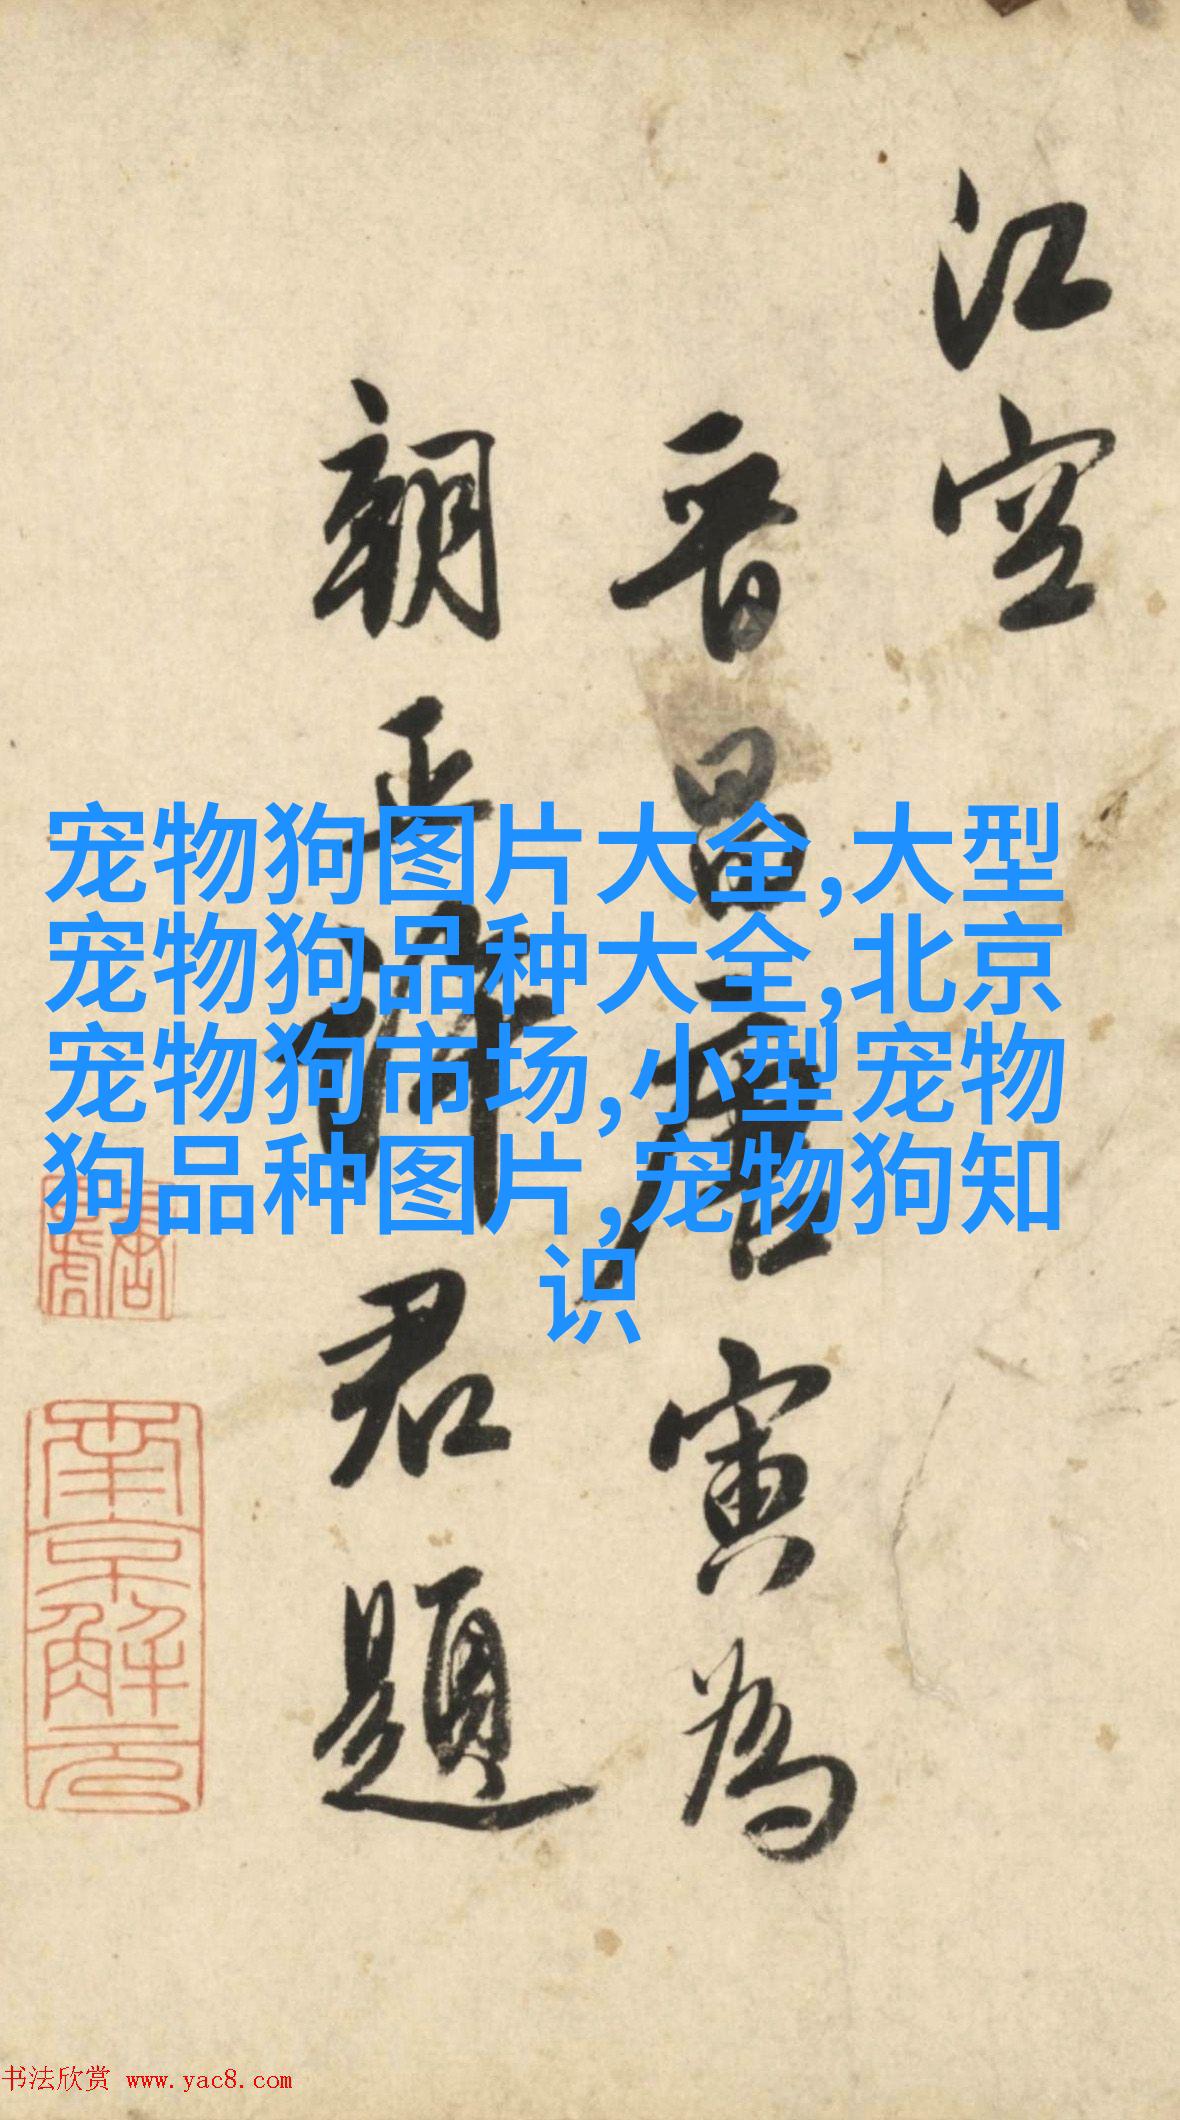 江空
晋昌唐寅為
朝正許君題
宠物狗图片大全,大型
宠物狗品种大全,北京
宠物狗市场,小型宠物
狗品种图片,宠物狗知
识
南京解元
书法欣赏 www.yac8.com